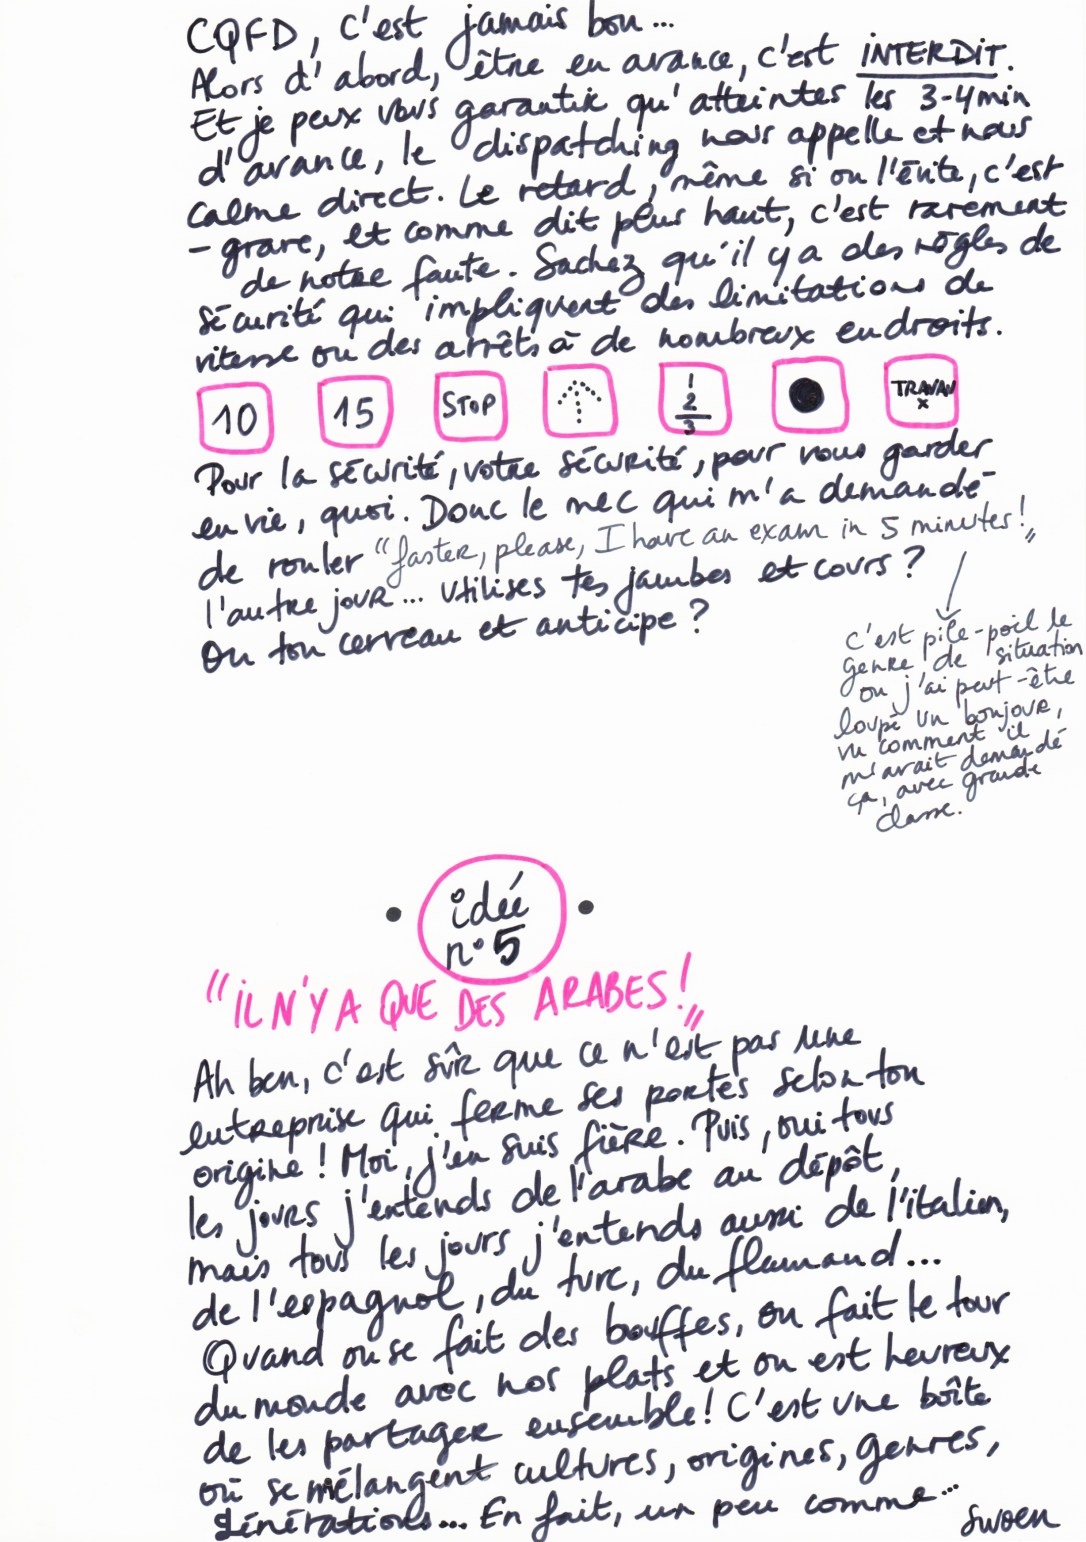 CQFD, c'est jamais bon...
Alors d'abord, être en avance, c'est INTERDIT.
Et je peux vous garantir qu'atteintes les 3-4min
d'avance, le dispatching nous appelle et nous
calme direct. Le retard, même si on l'évite, c'est
- grave, et comme dit plus haut, c'est rarement
de notre faute. Sachez qu'il y a des règles de
sécurité qui impliquent des limitations de
vitesse ou des arrêts à de nombreux endroits.
10 15 STOP 1 2 3 TRAVAUX
Pour la sécurité, votre sécurité, pour vous garder
en vie, quoi. Donc le mec qui m'a demandé
de rouler "faster, please, I have an exam in 5 minutes!"
l'autre jour... Utilises tes jambes et cours ?
Ou ton cerveau et anticipe ?
c'est pile-poil le
genre de situation
ou j'ai peut-être
loupé un bonjour,
vu comment il
m'avait demandé
ça, avec grande
classe.
idée
n°5
"IL N'Y A QUE DES ARABES!"
Ah ben, c'est sûr que ce n'est pas une
entreprise qui ferme ses portes selon ton
origine ! Moi, j'en suis fière. Puis, oui tous
les jours j'entends de l'arabe au dépôt,
mais tous les jours j'entends aussi de l'italien,
de l'espagnol, du turc, du flamand...
Quand on se fait des bouffes, on fait le tour
du monde avec nos plats et on est heureux
de les partager ensemble! C'est une boîte
où se mélangent cultures, origines, genres,
générations... En fait, un peu comme...
Swoen